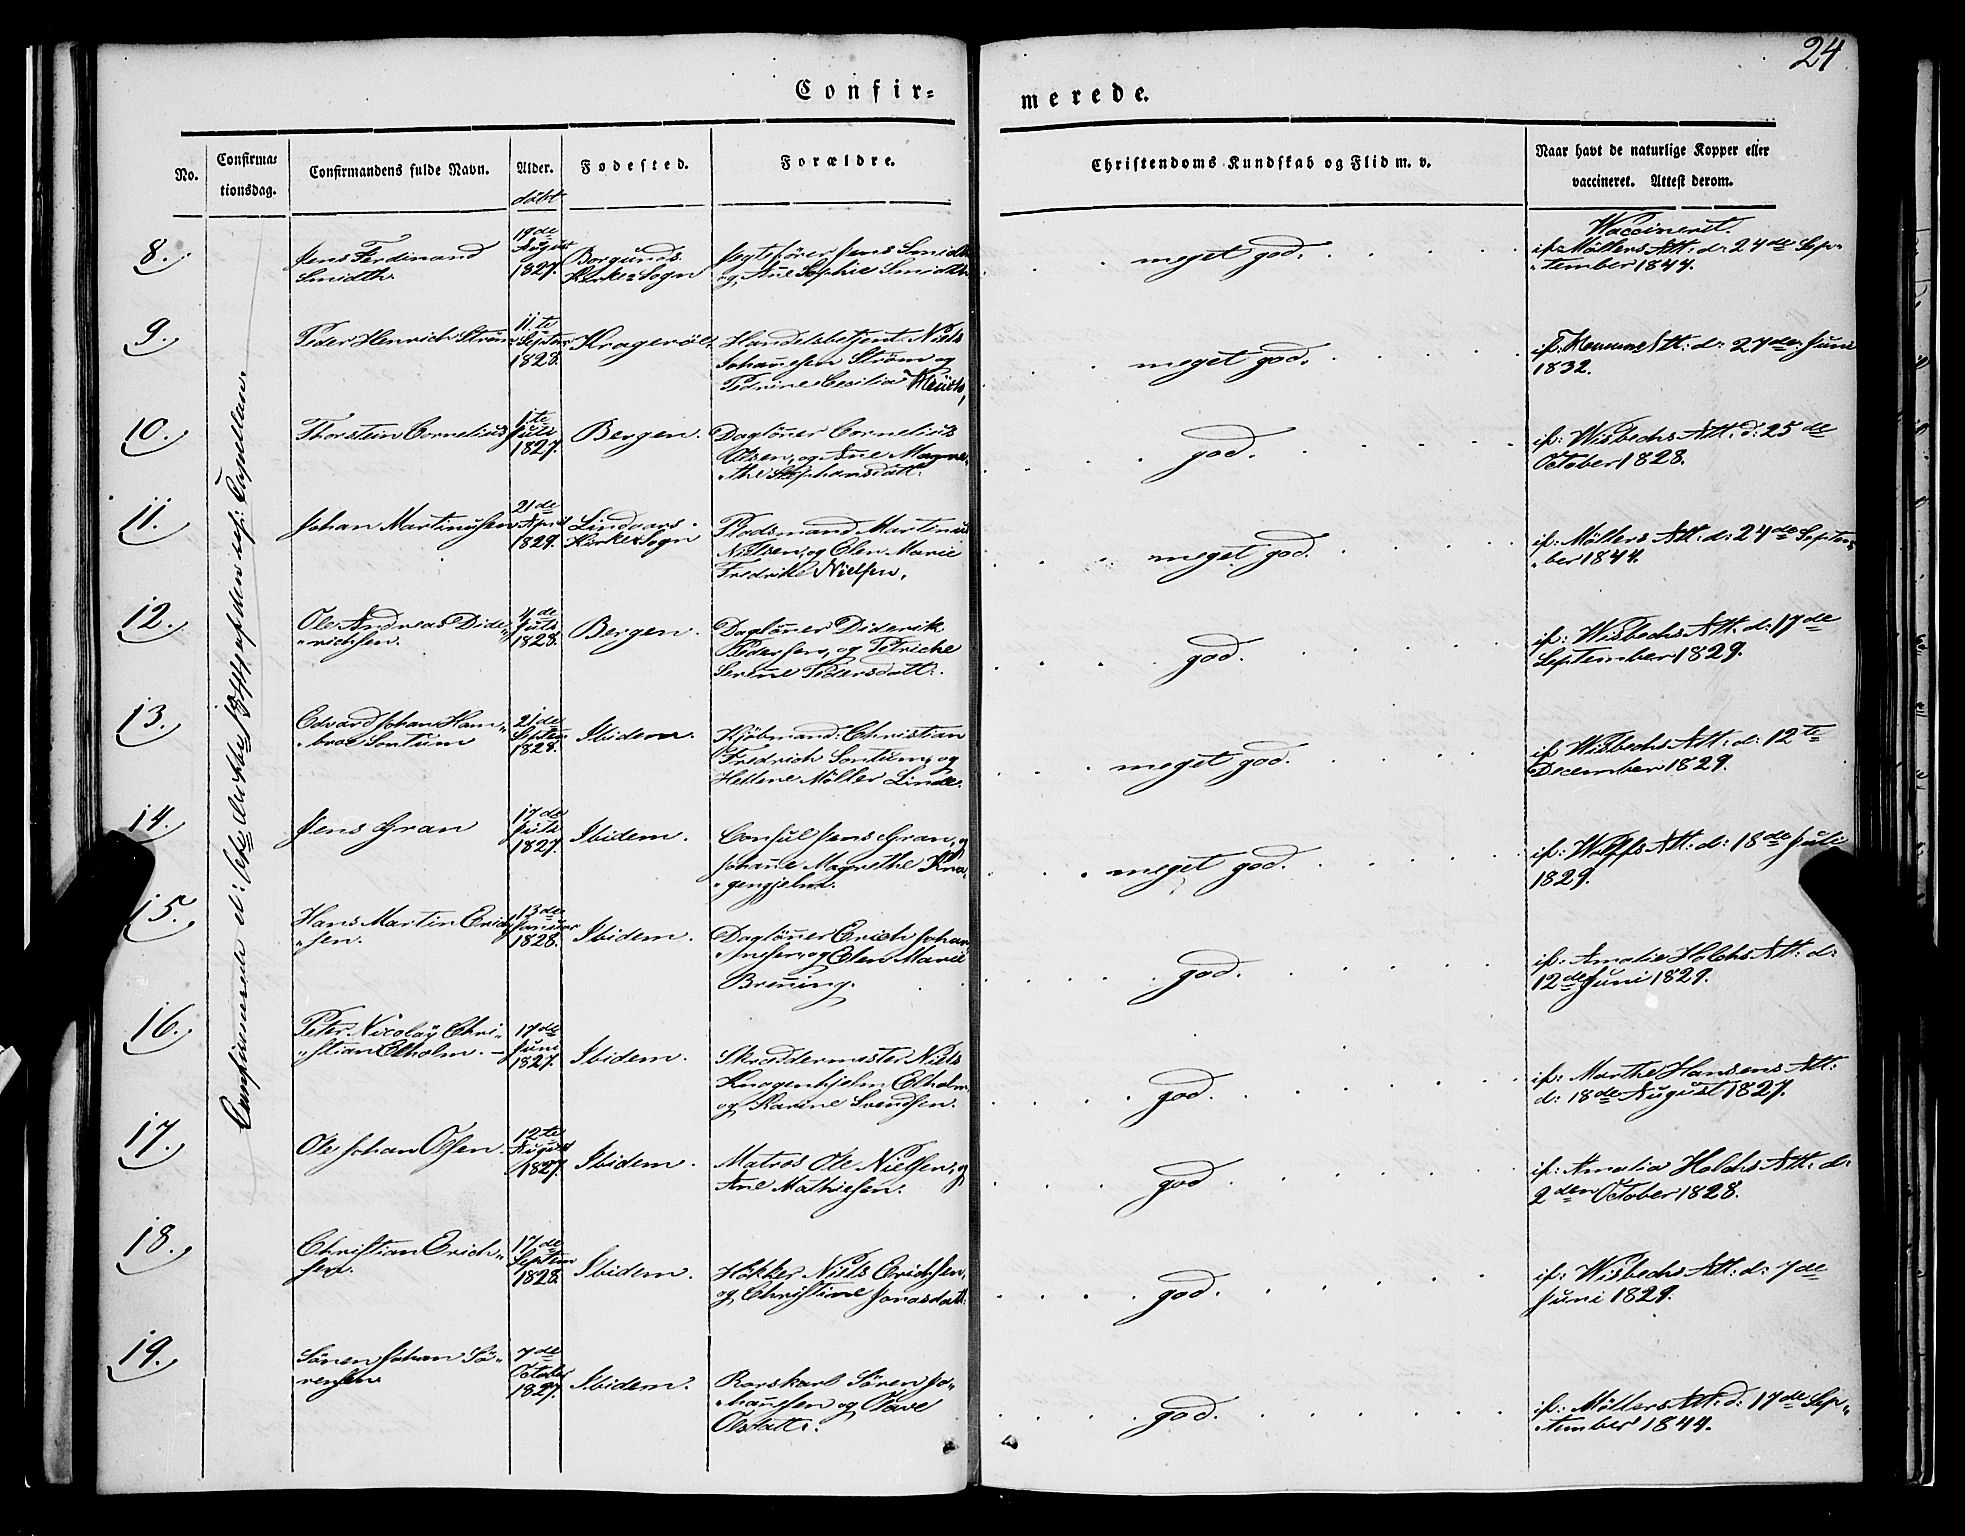 24
Confir-
merede.
No.
Confirma-
tionsdag.
Confirmandens fulde Navn.
Alder.
döbt
Fødested.
Forældre.
Christendoms Kundskab og Flid m. v.
Naar havt de naturlige Kopper eller
vaccineret. Attest derom.
8.
Jens Ferdinand
Smidth.
19de
August
1827.
Borgunds
Kirke-Sogn
Jegteförer Jens Smidth
og Ane Sophie Smidth.
meget god.
Waccineret.
if: Möllers Att: d: 24de Sep-
tember 1844.
9.
Peder Henrich Ström
11te
Septbr
1828.
Krageröe.
Handelsbetjent Niels
Johannesen Ström og
Pedrine Cecilia
meget god.
if: Att: d: 27de Juni
1832.
10.
Thorstein Cornelius
1te
Juli
1827.
Bergen.
Daglönner Cornelius
Olsen, og Ane Magre-
the Stephansdatt.
god.
if: Wisbechs Att: d: 25de
October 1828.
11.
Johan Martinusen
21de
April
1829.
Lindaas-
Kirke-Sogn
Pladsmand Martinus
Nielsen, og Elen Marie
Fredrike Nielsen.
meget god.
if: Möllers Att: d: 24de Septem-
ber 1844.
12.
Ole Andreas Dide-
richsen.
4de
Juli
1828.
Bergen.
Daglönner Diderik
Pedersen, og Petriche
Serine Pedersdatt:.
god.
if: Wisbechs Att: d: 17de
September 1829.
13.
Edvard Johan Ham-
broe Sontum
21de
Septem
1828.
Ibidem.
Kjöbmand Christian
Fredrich Sontum, og
Hellene Möller Linde.
meget god.
if: Wisbechs Att: d: 12te
December 1829.
14.
Jens Gran
17de
Juli
1827.
Ibidem.
Consul Jens Gran, og
Johanne Magrethe Kna-
gengjelm.
meget god.
if: Att: d: 18de Juli
1829.
15.
Hans Martin Erich-
sen.
13de
Januar
1828.
Ibidem.
Daglönner Erich Johan-
nesen, og Elen Marie
Brenning.
god.
if: Amalie Holchs Att: d:
12de Juni 1829.
16.
Peter Nicolay Chri-
stian Elholm.
17de
Juni
1827.
Ibidem.
Skræddermester Niels
Knagenhjelm Elholm,
og Karine Svendsen.
god.
if: Marthe Hansens Att:
d: 18de August 1827.
17.
Ole Johan Olsen.
12te
August
1827.
Ibidem.
Matros Ole Nielsen, og
Ane Mathiesen.
god
if: Amalia Holchs Att: d:
2den October 1828.
18.
Christian Erich-
sen.
17de
Septem
1828.
Ibidem.
Hökker Niels Erichsen,
og Christine Jonasdatt:
god.
if: Wisbechs Att: d: 7de
Juni 1829.
19.
Sören Johan Sö-
rensen
7de
October
1827.
Ibidem.
Rorskarl Sören Jo-
hannesen og
Olsdatt:.
god.
if: Möllers Att: d: 17de Sep-
tember 1844.
Confirmerede d: 6te October 1844 af den res: Capellan.